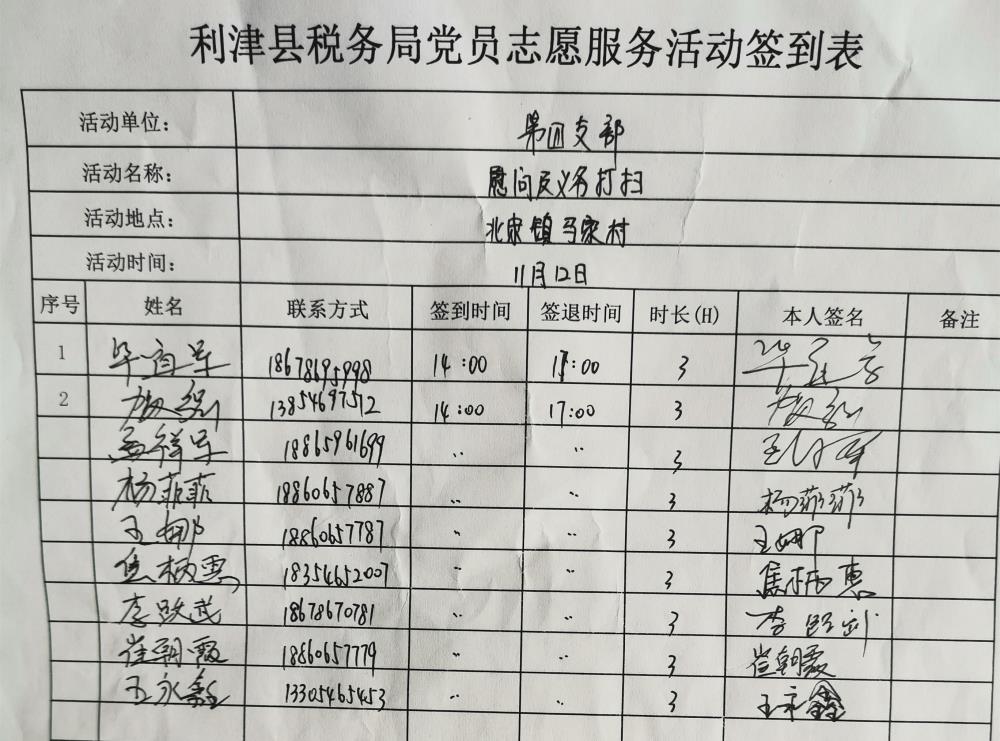 利津县税务局党员志愿服务活动签到表
活动单位: 第四支部
活动名称: 慰问及义务打扫
活动地点: 北宋镇马家村
活动时间: 11月12日
序号 姓名 联系方式 签到时间 签退时间 时长(H) 本人签名 备注
1 毕道军 18678695998 14:00 17:00 3
2 13854697512 14:00 17:00 3
孟祥军 18865961699 〃 〃 3
杨菲菲 18860657887 〃 〃 3 杨菲菲
王娜 18860657787 〃 〃 3 王娜
焦柄惠 18354652007 〃 〃 3 焦柄惠
李跃武 18678670781 〃 〃 3 李跃武
崔朝霞 18860657779 〃 〃 3 崔朝霞
王永鑫 13305465453 〃 〃 3 王永鑫